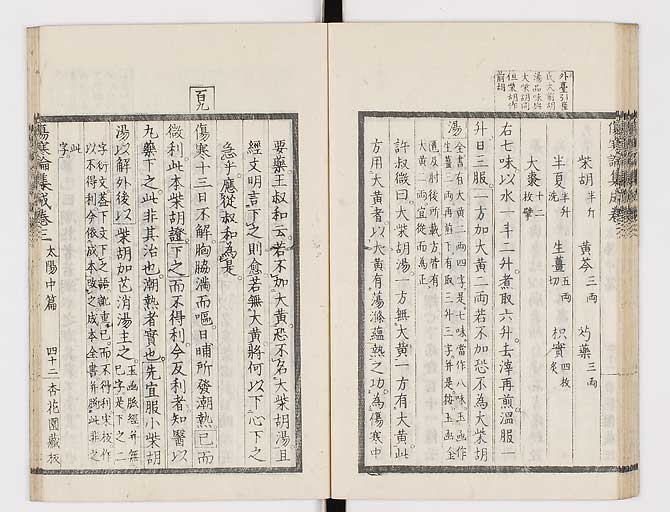 外臺引崔
氏大前胡
湯品味與
大柴胡同
但柴胡作
前胡
柴胡半斤　黃芩三兩　芍藥三兩
半夏半升洗　生薑五兩切　枳實四枚炙
大棗十二枚擘
右七味以水一斗二升煮取六升去滓再煎溫服一
升日三服一方加大黃二兩若不加恐不為大柴胡
湯
全書有大黃二兩四字是七味當作八味玉函作
生薑三兩再煎下有取三升三字并是按玉函金
匱及肘後所載方皆有
大黃二兩宜從而為正
許叔微曰大柴胡湯一方無大黃一方有大黃此
方用大黃者以大黃有蕩滌蘊熱之功為傷寒中
要藥王叔和云若不加大黃恐不名大柴胡湯且
經文明言下之則愈若無大黃將何以下心下之
急乎應從叔和為是
百九
傷寒十三日不解胸脇滿而嘔日晡所發潮熱已而
微利此本柴胡證下之而不得利今反利者知醫以
丸藥下之此非其治也潮熱者實也先宜服小柴胡
湯以解外後以柴胡加芒消湯主之
玉函脈經并無
已字是下之二
字衍文蓋下文下之語訛重已而不得利宋板作
以不得利今依成本改之成本全書并脫此非之
此
字
傷寒論集成卷三　太陽中篇　四十二　杏花園藏板
傷寒論集成卷